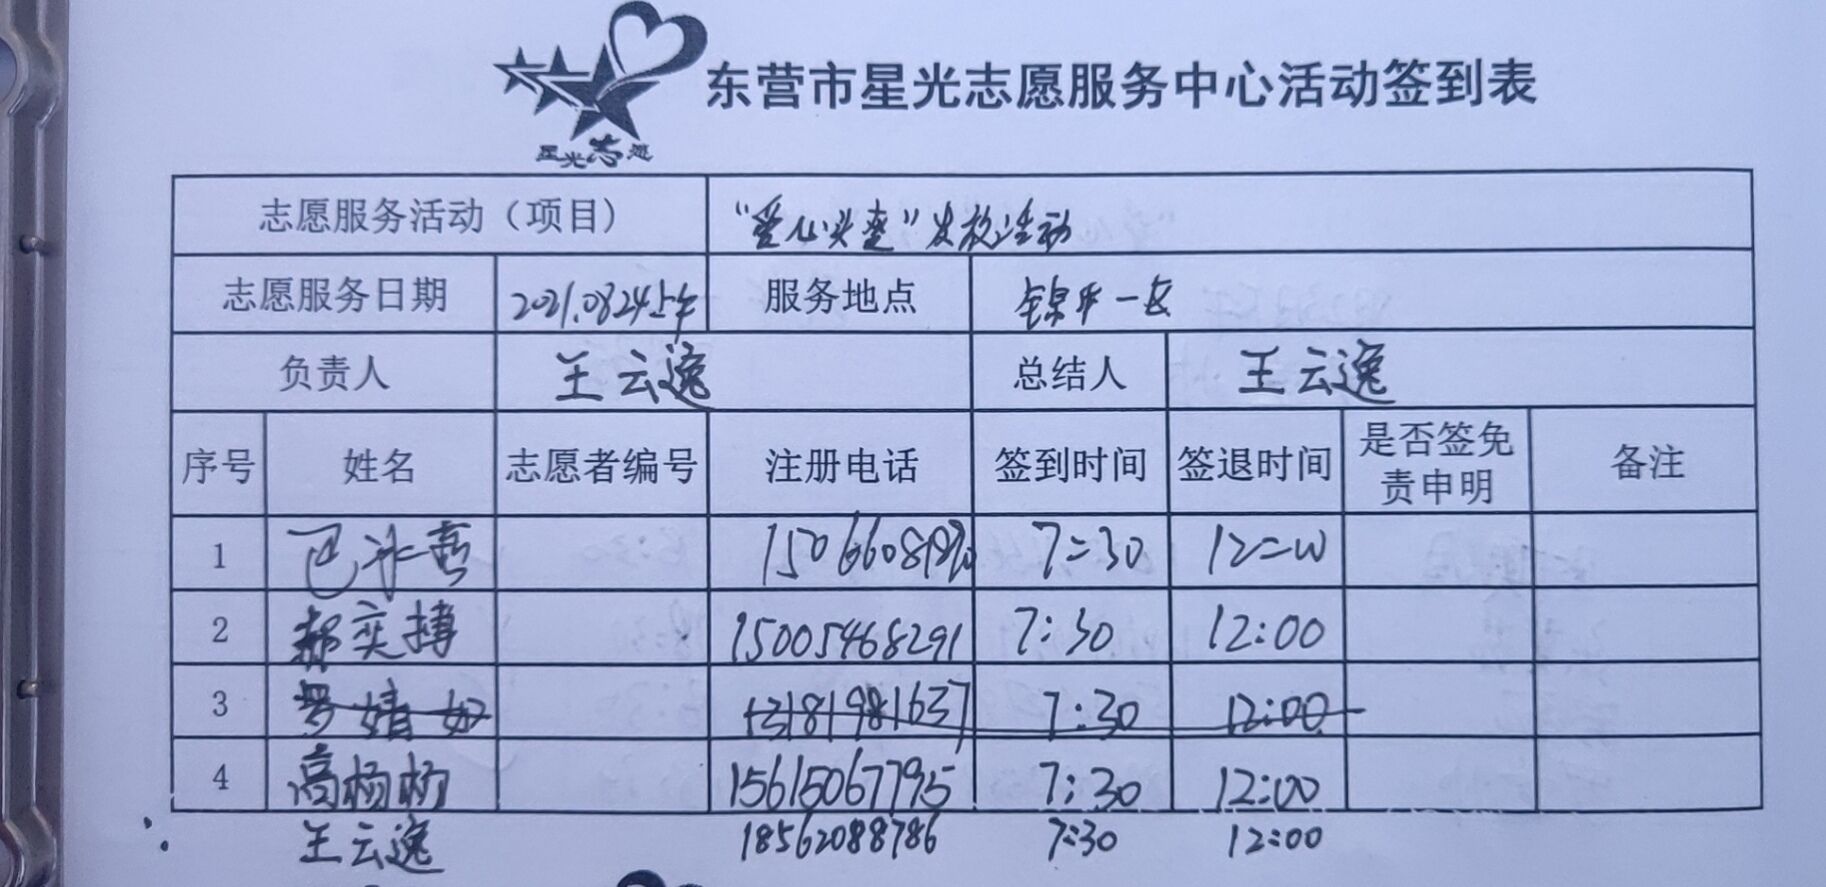 星光志愿
东营市星光志愿服务中心活动签到表
志愿服务活动（项目） "爱心头盔"发放活动
志愿服务日期 2021.0824上午 服务地点 锦华一区
负责人 王云逸 总结人 王云逸
序号 姓名 志愿者编号 注册电话 签到时间 签退时间 是否签免责申明 备注
1 7:30 12:00
2 郝奕搏 15005468291 7:30 12:00
3 婧 13181981637 7:30 12:00
4 高杨杨 15615067795 7:30 12:00
王云逸 18562088786 7:30 12:00